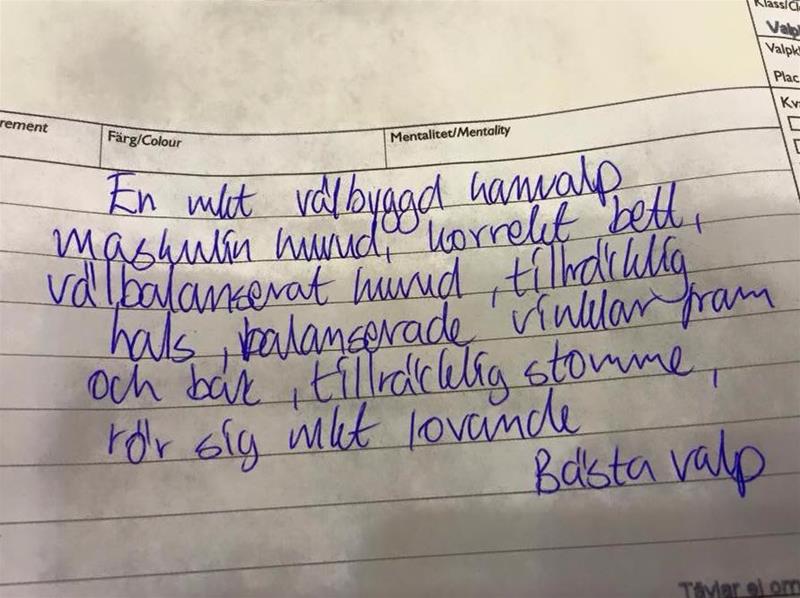 Klass/Cl
Valpk
Valpkl
Plac
Kv
rement
Färg/Colour
Mentalitet/Mentality
En mkt välbyggd hanvalp
maskulin hund, korrekt bett,
välbalanserat huvud, tillräcklig
hals, balanserade vinklar fram
och bak, tillräcklig stomme,
rör sig mkt lovande
Bästa valp
Tävlar ej om